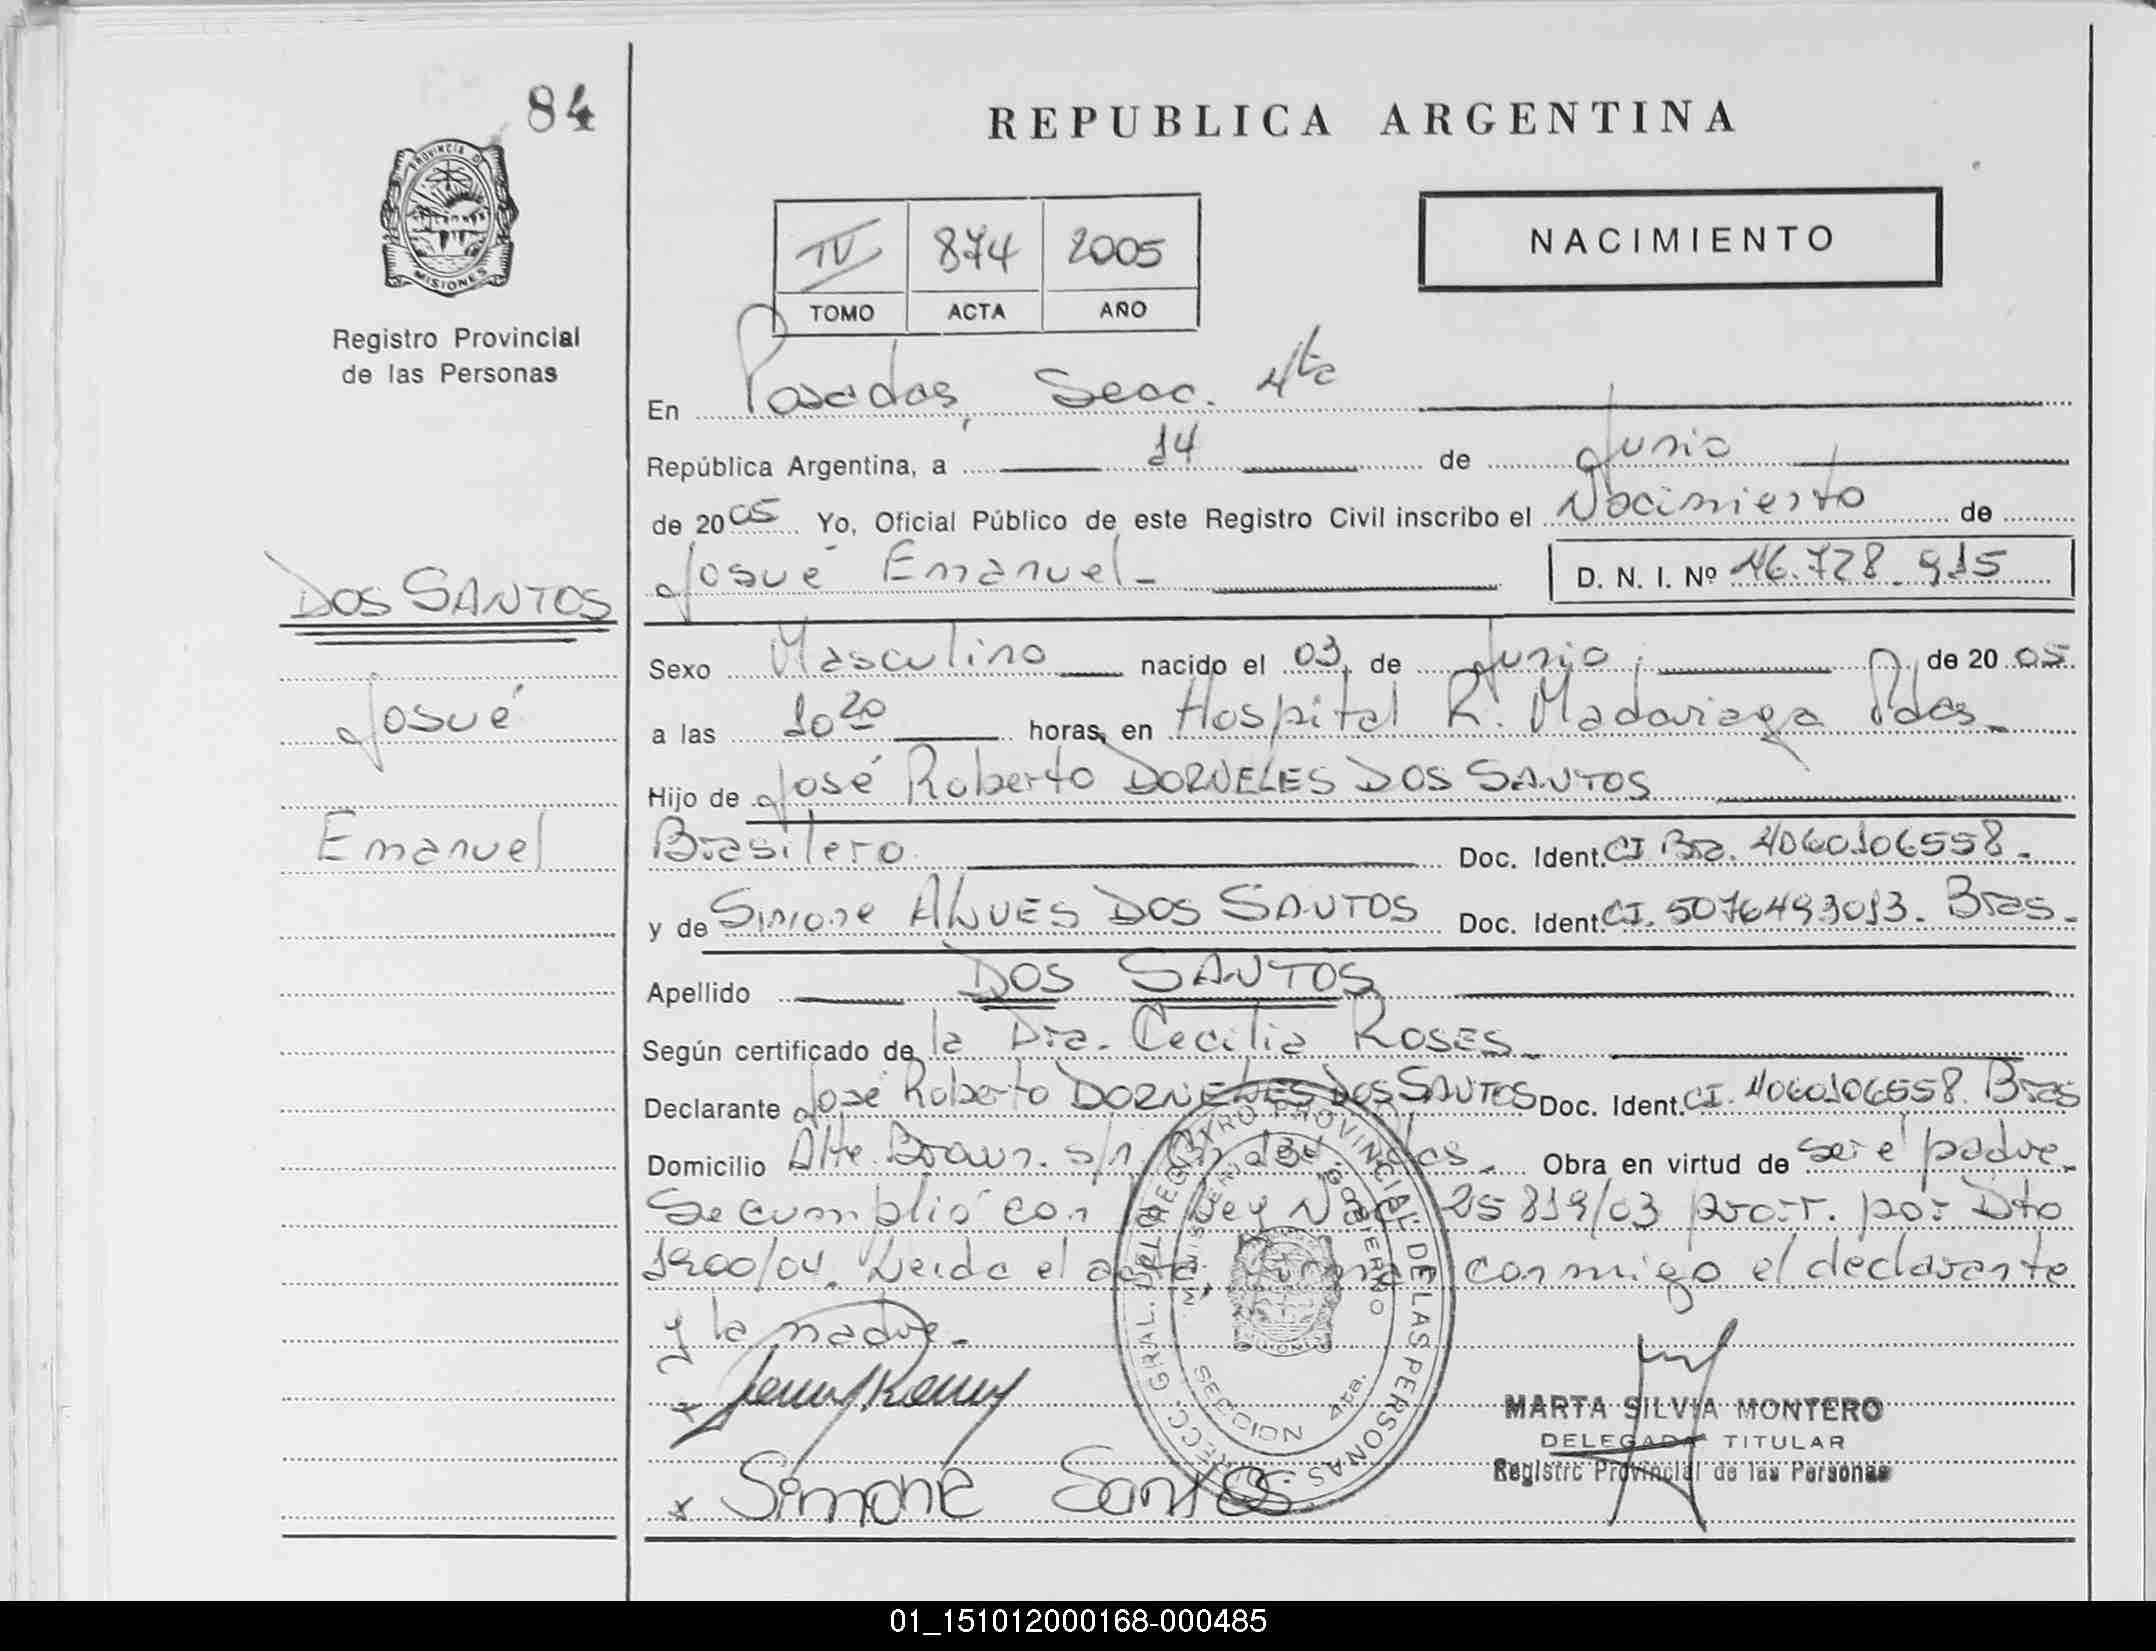 84
PROVINCIA DE
MISIONES
Registro Provincial
de las Personas
DOS SANTOS
Josué
Emanuel
REPUBLICA ARGENTINA
IV 874 2005
TOMO ACTA AÑO
NACIMIENTO
En Posadas, Secc. 4ta
República Argentina, a 14 de Junio
de 2005 Yo, Oficial Público de este Registro Civil inscribo el Nacimiento de
Josué Emanuel - D. N. I. Nº 46.728.915
Sexo Masculino nacido el 03, de Junio, de 2005
a las 10 20 horas, en Hospital R. Madariaga Pdas
Hijo de José Roberto DORNELES DOS SANTOS
Brasilero Doc. Ident. CI Bra. 4060106558.
y de Simone ALVES DOS SANTOS Doc. Ident. CI. 5076493013. Bras.
Apellido DOS SANTOS
Según certificado de la Dra. Cecilia ROSES
Declarante José Roberto DORNELES DOS SANTOS Doc. Ident. CI. 4060106558. Bras
Domicilio Alte. Brown. s/n. Obra en virtud de ser el padre.
Se cumplió con Ley 25819/03 prorr. por Dto
1900/04. Leida el acta conmigo el declarante
y la madre.
x
x Simone Santos
DIRECC. GRAL. DEL REGISTRO PROVINCIAL DE LAS PERSONAS
MINISTERIO DE GOBIERNO
SECCION 4ta.
MARTA SILVIA MONTERO
DELEGADA TITULAR
Registro Provincial de las Personas
01_151012000168-000485